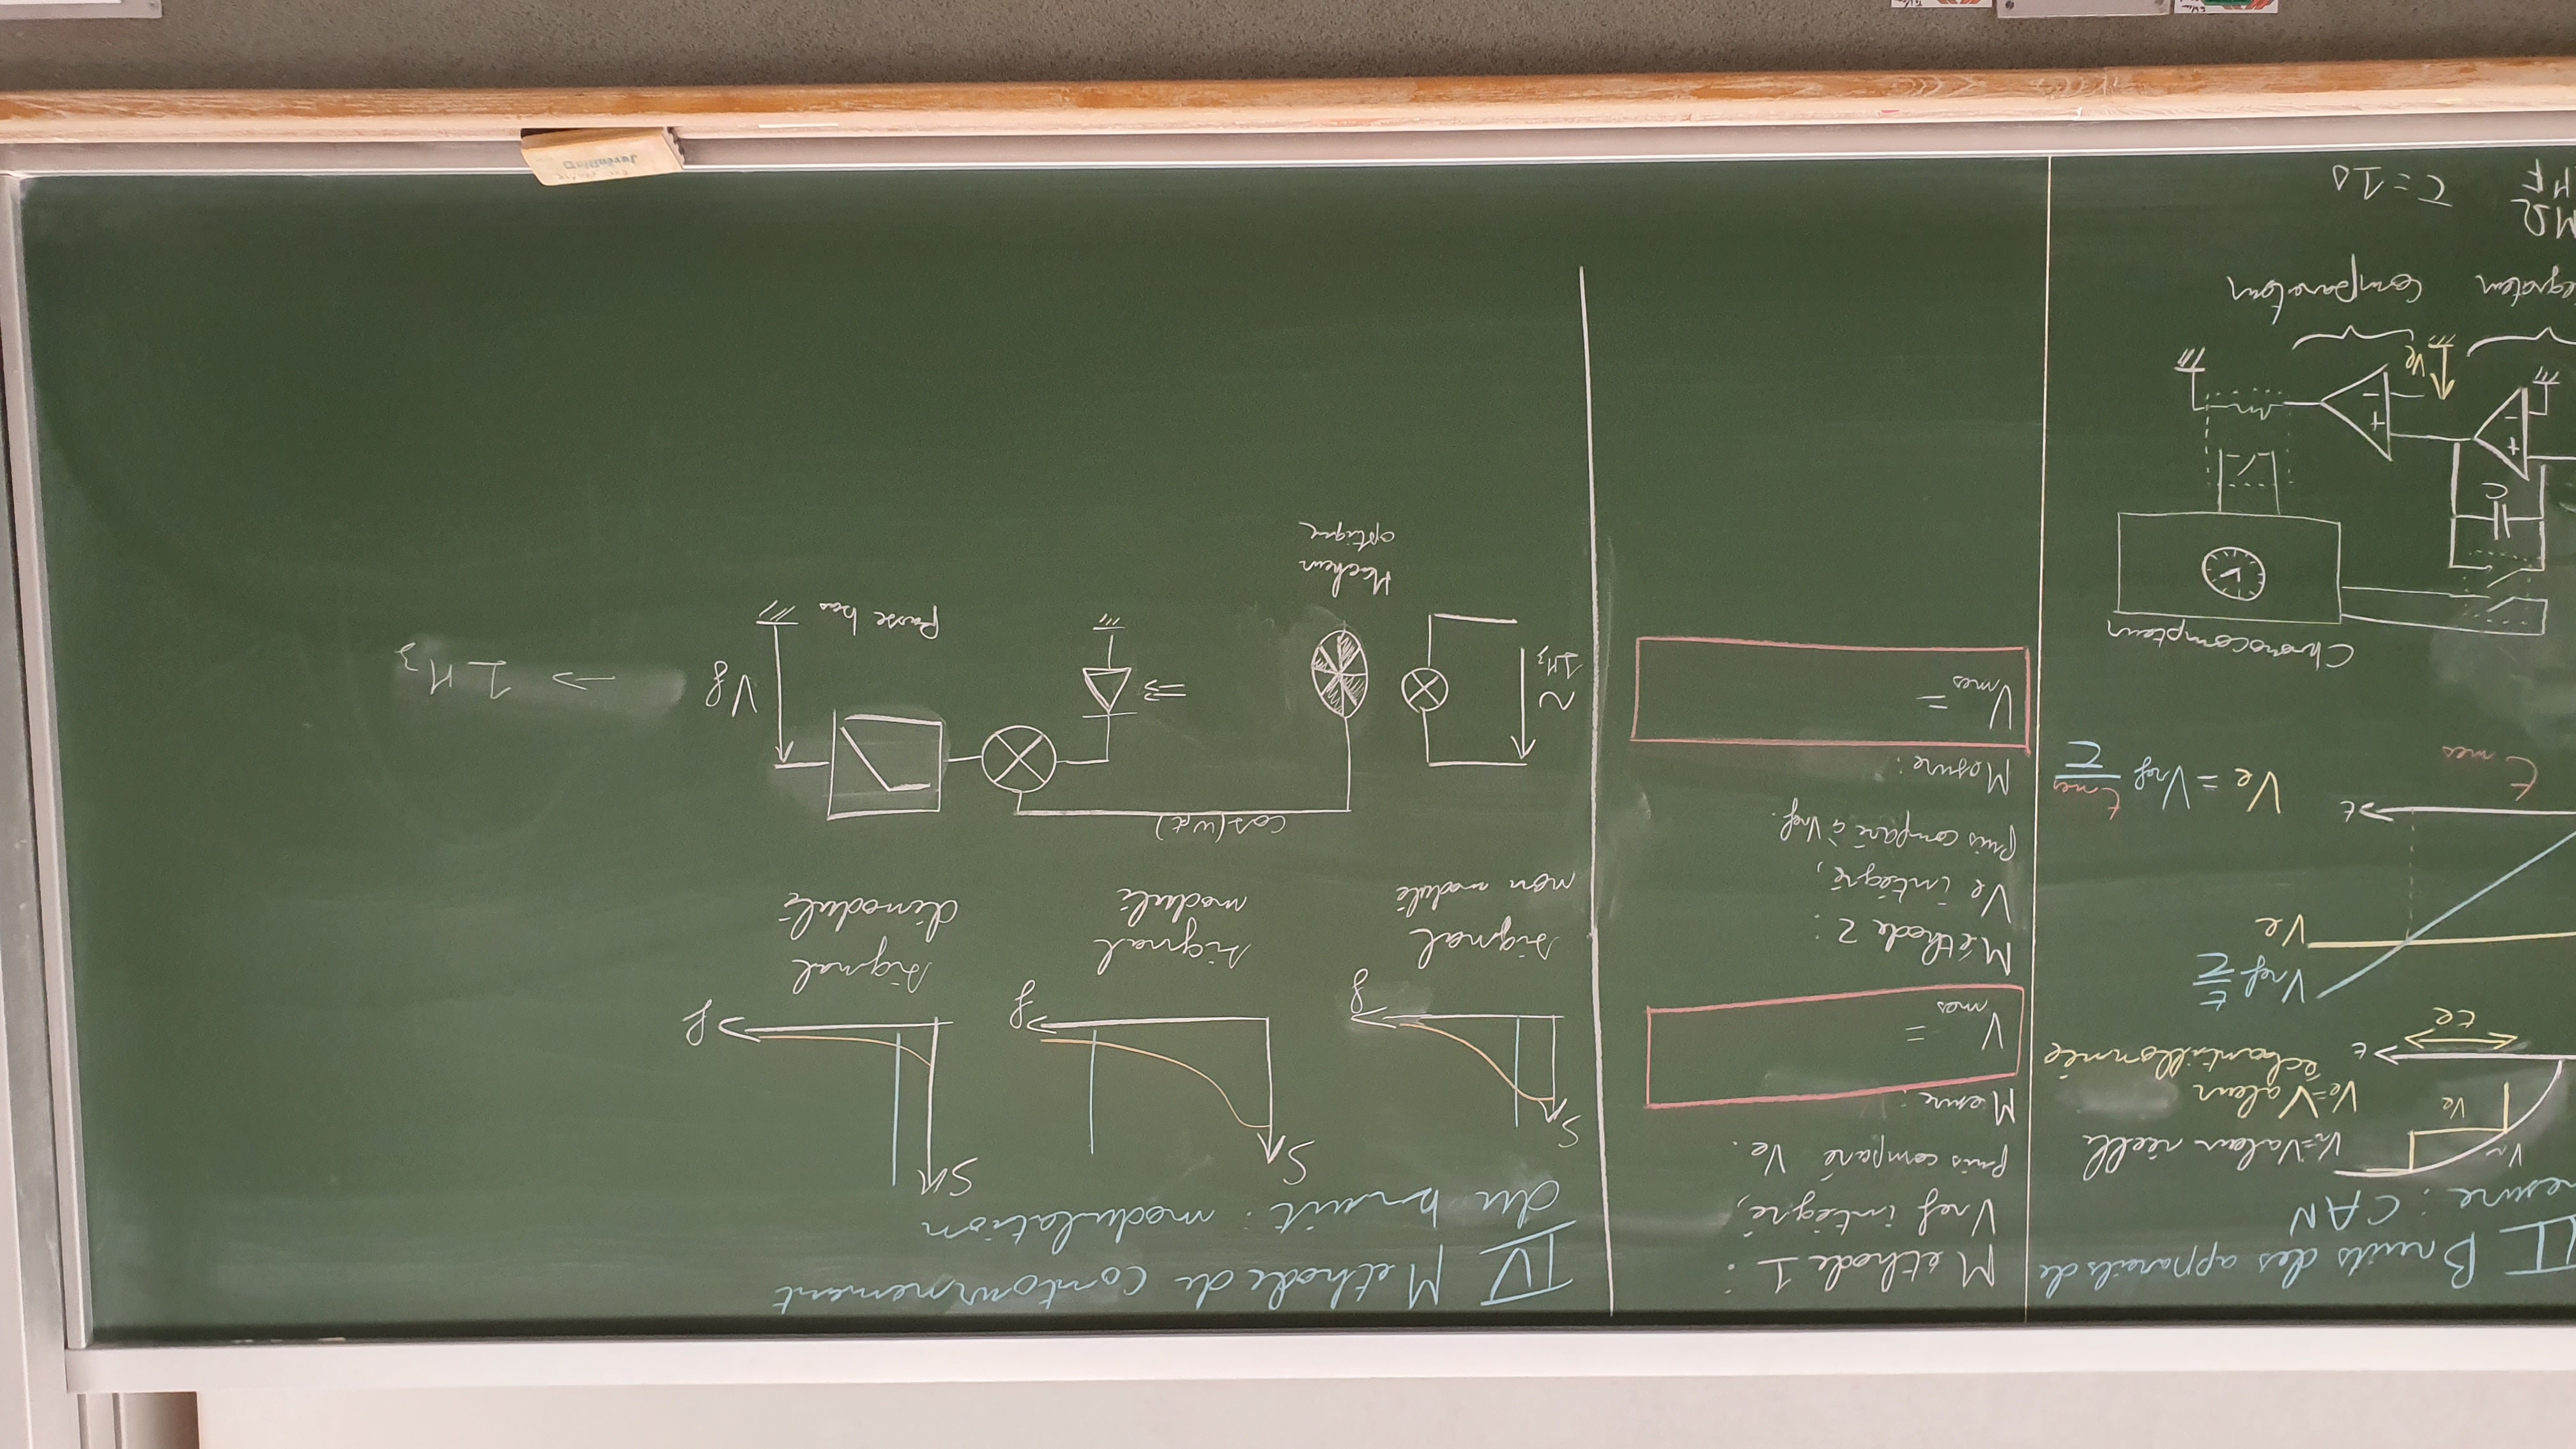 II Bruits des appareils de
esure : CAN
Vr
Vr=Valeur réelle
Ve
Ve=Valeur
échantillonnée
te
t
Vref t/τ
Ve
t
tmes
Ve = Vref tmes/τ
Chronocompteur
C
+
-
+
-
Ve
égrateur
Comparateur
MΩ
τ = 1s
Méthode 1 :
Vref intégré,
puis comparé Ve.
Mesure :
Vmes =
Méthode 2 :
Ve intégré,
puis comparé à Vref.
Mesure :
Vmes =
IV Méthode de contournement
du bruit : modulation
S
f
signal
non modulé
S
f
signal
modulé
S
f
signal
démodulé
cos(ωt)
~
1Hz
Hacheur
optique
Passe bas
Vf
→ 1Hz